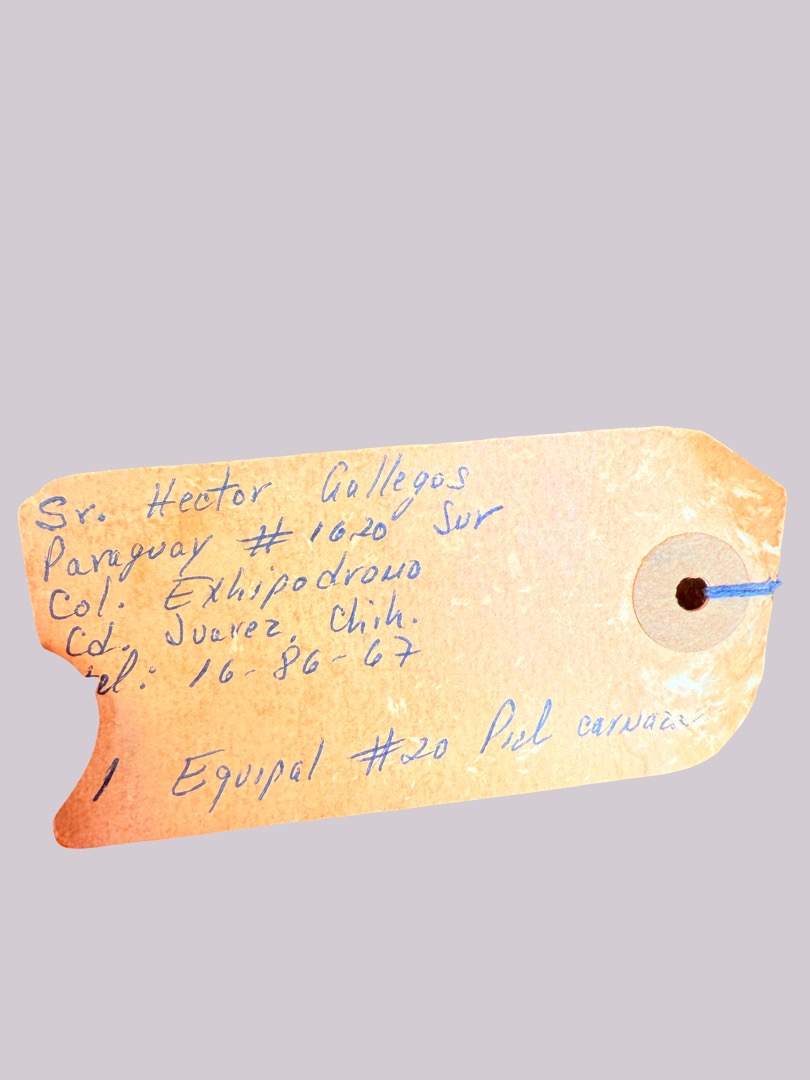 Sr. Hector Gallegos
Paraguay # 1620 Sur
Col. Exhipodromo
Cd. Juarez, Chih.
tel: 16-86-67
1 Equipal #20 Piel carnaza